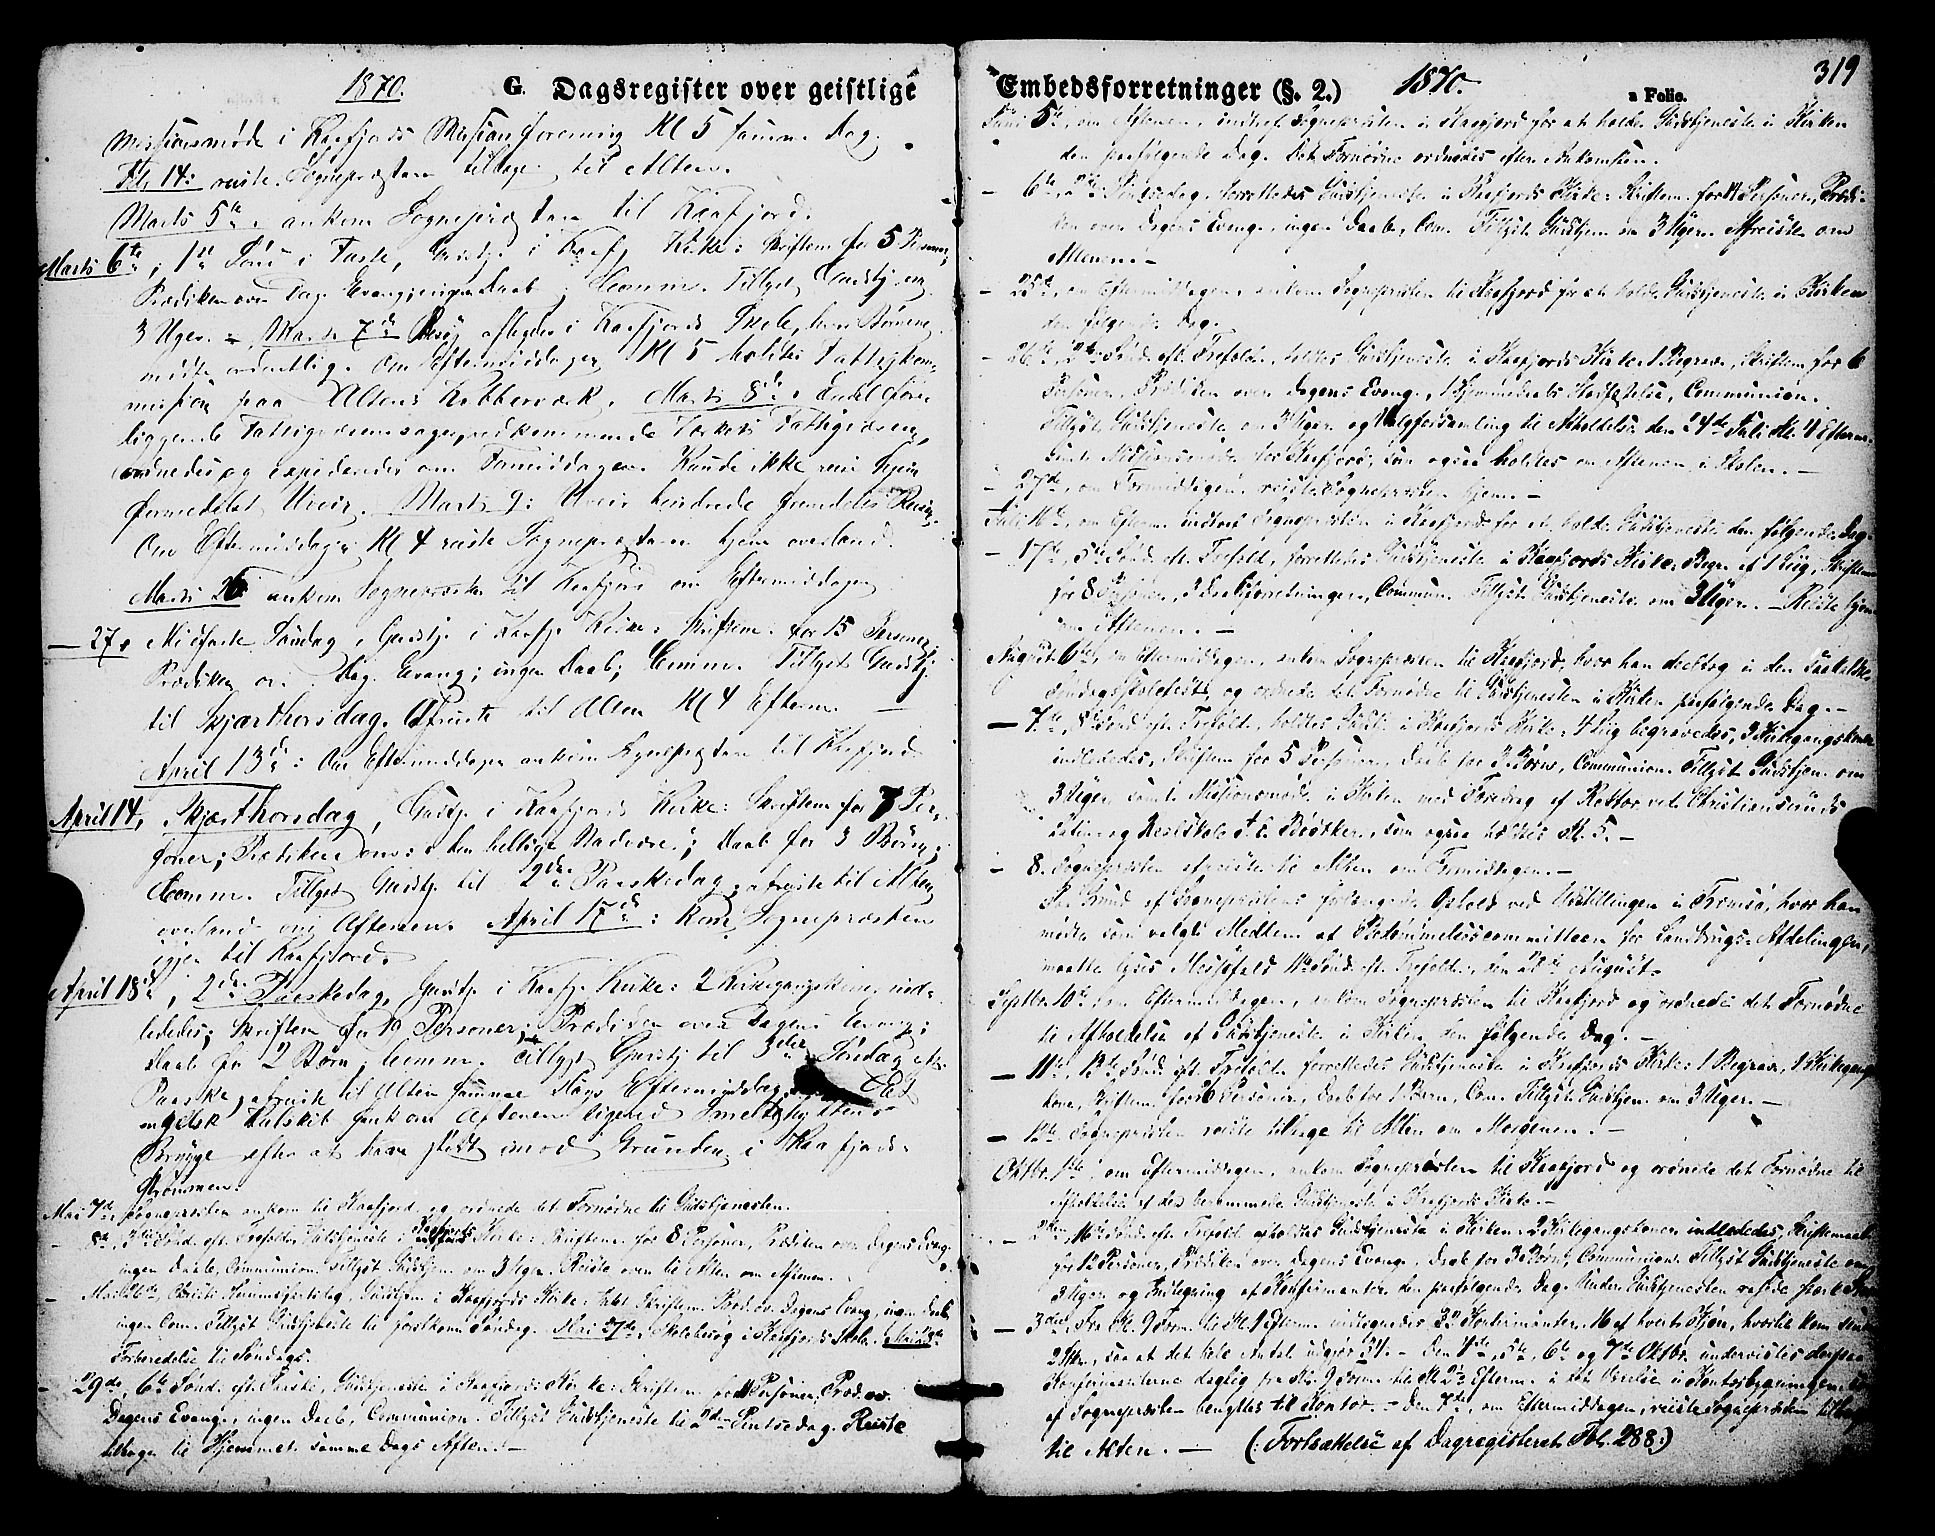 1870. G. Dagsregister over geistlige
Missionsmøde i Kaafjords Missionsforening Kl 5 samme Dag.
Feb. 14: reiste Sognepræsten tilbage til Alten.
Marts 5te: ankom Sognepræsten til Kaafjord.
Marts 6te, 1ste Sønd. i Faste, Gudstj. i Kaafj. Kirke: Skriftem. for 5 Personer,
Prædiken over Dag. Evang; ingen Daab; Comm. Tillyst Gudstj. om
3 Uger. – Marts 7de Besøg aflagdes i Kaafjords Skole, hvor Børnene
mødte ordentlig. Om Eftermiddagen Kl 5 holdtes Fattigkom-
mission paa Altens Kobberværk. Marts 8de: Endel fore-
liggende Fattigvæsenssager, vedkommende Værkets Fattigvæsen,
ordnedes og expederedes om Formiddagen. Kunde ikke reise hjem
formedelst Uveir. Marts 9: Uveir hindrede fremdeles Reisen.
Om Eftermiddagen Kl 4 reiste Sognepræsten hjem overland.
Marts 26 ankom Sognepræsten til Kaafjord om Eftermiddagen
– 27, Midfaste Søndag, Gudstj. i Kaafj. Kirke: Skriftem. for 15 Personer,
Prædiken ov. Dag. Evang; ingen Daab; Comm. Tillyst Gudstj.
til Skjærthorsdag. Afreiste til Alten Kl 4 Efterm. –
April 13de: Om Eftermiddagen ankom Sognepræsten til Kaafjord.
April 14, Skjærthorsdag, Gudstj. i Kaafjords Kirke: Skriftem. for 7 Per-
soner; Prædiken over: den hellige Nadvere; Daab for 3 Børn;
Comm. Tillyst Gudstj. til 2den Paaskedag, afreiste til Alten
overland om Aftenen. April 17de: kom Sognepræsten
igjen til Kaafjord.
April 18de, 2den Paaskedag, Gudstj. i Kaafj. Kirke: 2 Kirkegangskoner ind-
lededes; Skriftem. for 19 Personer; Prædiken over Dagens Evang;
Daab for 2 Børn; Comm. Tillyst Gudstj. til 3die Søndag eft.
Paaske, afreiste til Alten samme Dags Eftermiddag. Et
engelsk Kulskib sank om Aftenen ligeved Smeltehyttens
Brygge efter at have stødt imod Grunden i Kaafjords-
strømmen.
Mai 7de, Sognepræsten ankom til Kaafjord og ordnede det Fornødne til Gudstjenesten.
– 8de, 3die Sønd. eft. Paaske, Gudstjeneste i Kaafjords Kirke: Skriftem. for 8 Personer, Prædiken over Dagens Evang.
ingen Daab, Communion. Tillyst Gudstjen. om 3 Uger. Reiste over til Alten om Aftenen.
Mai 26de, Christi Himmelfartsdag, Gudstjen. i Kaafjords Kirke: Skriftem. Præd. ov. Dagens Evang., ingen Daab,
ingen Com. Tillyst Gudstjeneste til førstkom. Søndag. Mai 27de, Skolebesøg i Kaafjords Skole. Mai 28de
Forberedelse til Søndags.
– 29de, 6te Sønd. eft. Paaske, Gudstjeneste i Kaafjords Kirke: Skriftem. for 11 Personer, Præd. ov.
Dagens Evang., ingen Daab, Communion. Tillyst Gudstjeneste til 2den Pintsedag. Reiste
tilbage til Hjemmet samme Dags Aften. –
Embedsforretninger (§. 2.) 1870. a Folio. 319
Juni 5te, om Aftenen, indtraf Sognepræsten i Kaafjord for at holde Gudstjeneste i Kirken
den paafølgende Dag. Det Fornødne ordnedes efter Ankomsten.
– 6te, 2den Pintsedag, forrettedes Gudstjeneste i Kaafjords Kirke: Skriftem. for 14 Personer, Prædi-
ken over Dagens Evang., ingen Daab, Com. Tillyst Gudstjen. om 3 Uger. Afreiste om
Aftenen. –
– 25de, om Eftermiddagen, ankom Sognepræsten til Kaafjord for at holde Gudstjeneste i Kirken
den følgende Dag.
– 26de, 2den Sønd. eft. Trefold., holdtes Gudstjeneste i Kaafjords Kirke: 1 Begrav., Skriftem. for 6
Personer, Prædiken over Dagens Evang., 1 Hjemmedaabs Stadfæstelse, Communion.
Tillyst Gudstjeneste om 3 Uger og Valgforsamling til Afholdelse den 24de Juli Kl. 4 Efterm.
samt Missionsmøde for Kaafjord, som ogsaa holdtes om Aftenen i Skolen. –
– 27de, om Formiddagen, reiste Sognepræsten hjem. –
Juli 16de, om Efterm. indtraf Sognepræsten i Kaafjord for at holde Gudstjeneste den følgende Dag.
– 17de, 5te Sønd. eft. Trefold., forrettedes Gudstjeneste i Kaafjords Kirke: Begr. af 1 Liig, Skriftem.
for 8 Personer, 3 Daabsforretninger, Commun. Tillyst Gudstjeneste om 3 Uger. – Reiste hjem
om Aftenen. –
August 6te, om Eftermiddagen, ankom Sognepræsten til Kaafjord, hvor han deeltog i den
Søndagsskolefest, og ordnede det Fornødne til Gudstjenesten i Kirken paafølgende Dag. –
– 7de, 8de Sønd. eft. Trefold., holdtes Gudstj. i Kaafjords Kirke: 4 Liig begravedes, 3 Kirkegangskoner
indlededes, Skriftem. for 5 Personer, Daab for 3 Børn, Communion. Tillyst Gudstjen. om
3 Uger samt Missionsmøde i Skolen med Foredrag af Rektor ved Christiansunds
Latin- og Realskole, som ogsaa holdtes Kl. 5. –
– 8. Sognepræsten afreiste til Alten om Formiddagen. –
Paa Grund af Sognepræstens forlængede Ophold ved Udstillingen i Tromsø, hvor han
mødte som valgt Medlem af Bedømmelsescommitteen for Landbrugs-Afdelingen,
maatte lyses Messefald 11te Sønd. eft. Trefold., den 28de August.
Septbr. 10de, om Eftermiddagen, ankom Sognepræsten til Kaafjord og ordnede det Fornødne
til Afholdelse af Gudstjeneste i Kirken den følgende Dag. –
– 11te, 13de Sønd. eft. Trefold., forrettedes Gudstjeneste i Kaafjords Kirke: 1 Begrav., 1 Kirkegangs-
kone, Skriftem. for 26 Personer, Daab for 1 Barn, Com. Tillyst Gudstjen. om 3 Uger. –
– 12te, Sognepræsten reiste tilbage til Alten om Morgenen. –
Oktbr. 1ste, om Eftermiddagen, ankom Sognepræsten til Kaafjord og ordnede det Fornødne til
Afholdelse af den berammede Gudstjeneste i Kaafjords Kirke. –
– 2den, 16de Sønd. eft. Trefold. afholdtes Gudstjeneste i Kirken: 2 Kirkegangskoner indlededes, Skriftemaal
for 12 Personer, Prædiken over Dagens Evang., Daab for 3 Børn, Communion. Tillyst Gudstjeneste om
3 Uger og Indtegning af Konfirmanter den paafølgende Dag. Under Gudstjenesten rasede stærk Storm
– 3die, Fra Kl. 9 Form. til Kl. 1 Efterm. indtegnedes 32 Konfirmanter, 16 af hvert Kjøn, hvortil kom senere
2 Stkr., saa at det hele Antal udgjør 34. – Den 4de, 5te, 6te og 7de Oktbr. undervistes derpaa
Konfirmanterne daglig fra Kl. 9 Form. til Kl. 2½ Efterm. i det Værelse i Kontorbygningen, som
af Sognepræsten benyttes til Kontor. – Den 7de, om Eftermiddagen, reiste Sognepræsten tilbage
til Alten. – (: Fortsættelse af Dagregisteret Fol. 288:)